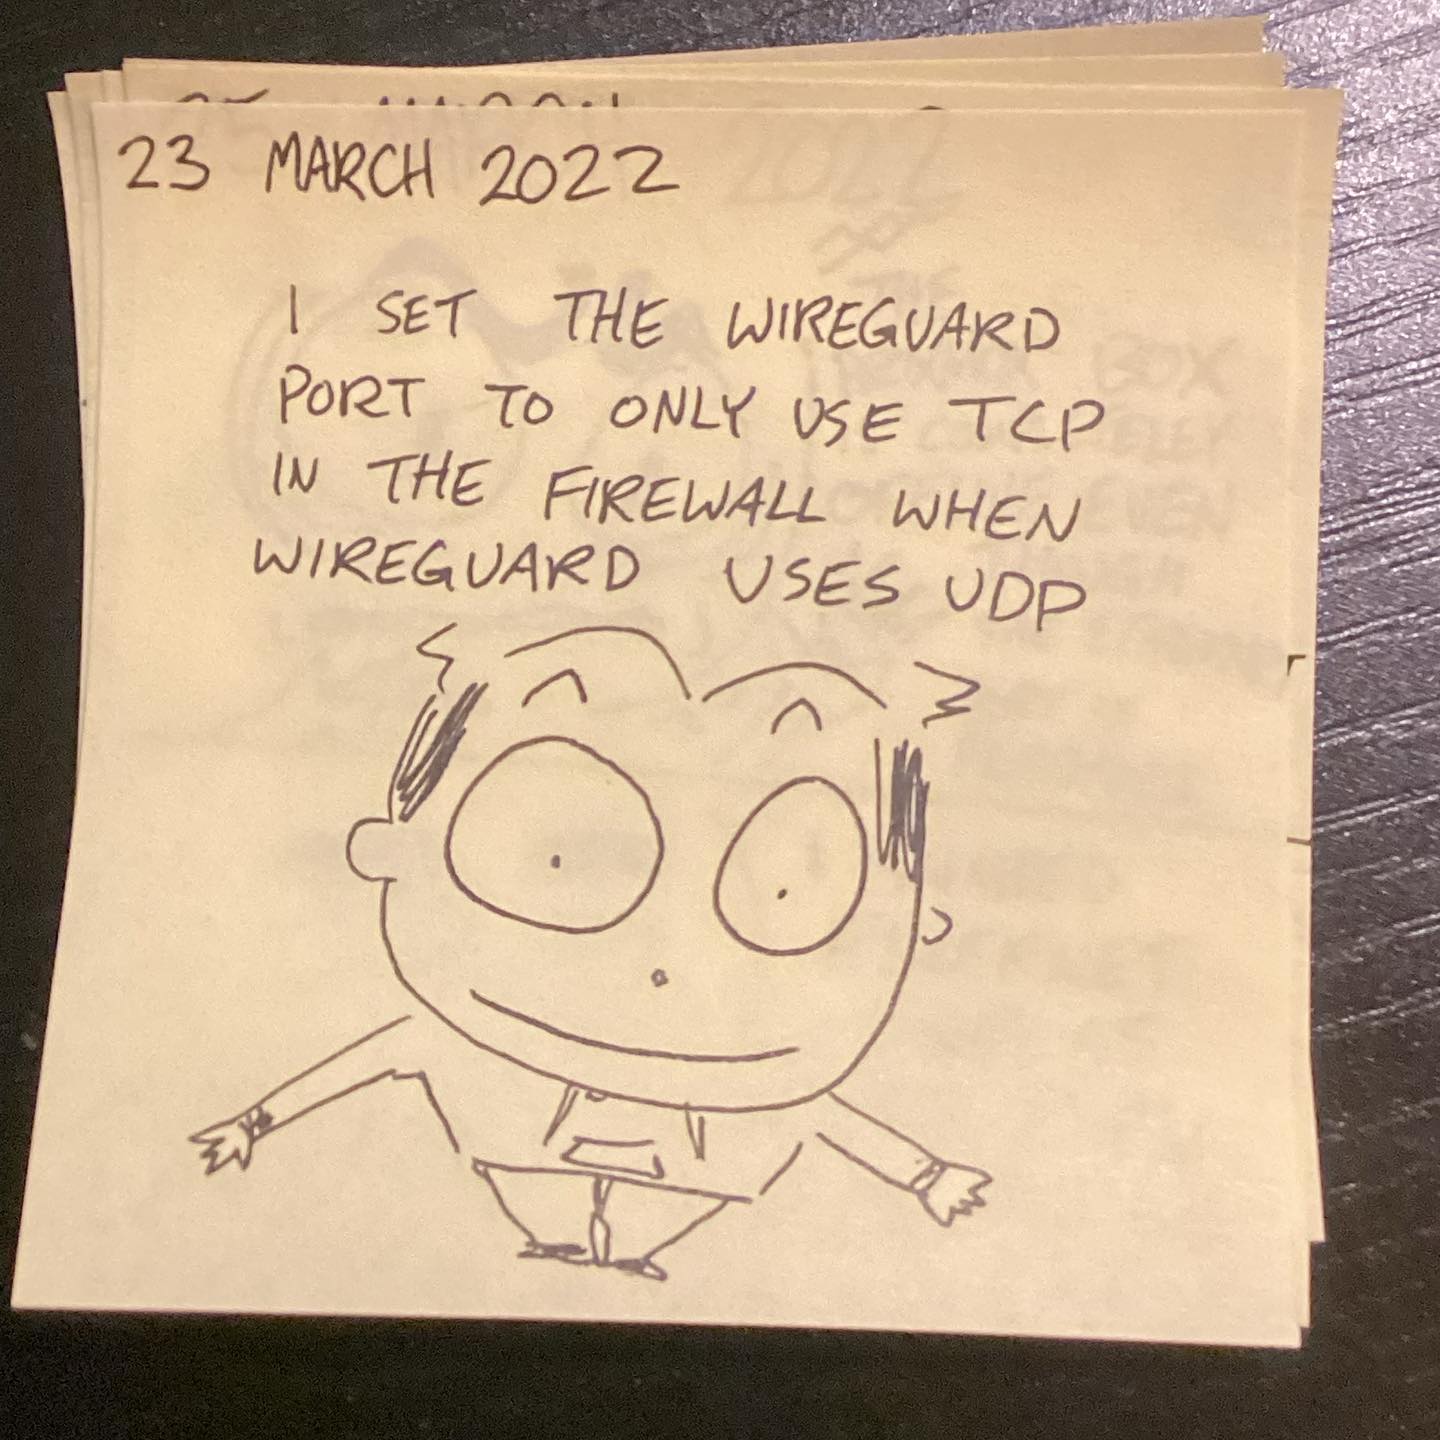 23 MARCH 2022
I SET THE WIREGUARD
PORT TO ONLY USE TCP
IN THE FIREWALL WHEN
WIREGUARD USES UDP